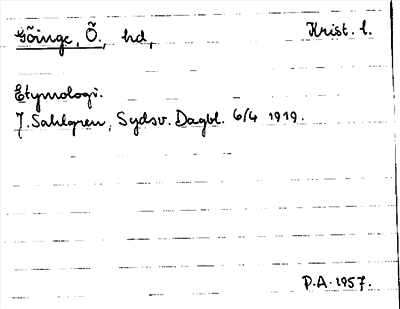 Göinge, Ö., hd, Krist. l.
Etymologi.
J. Sahlgren, Sydsv. Dagbl. 6/4 1919.
P.A. 1957.